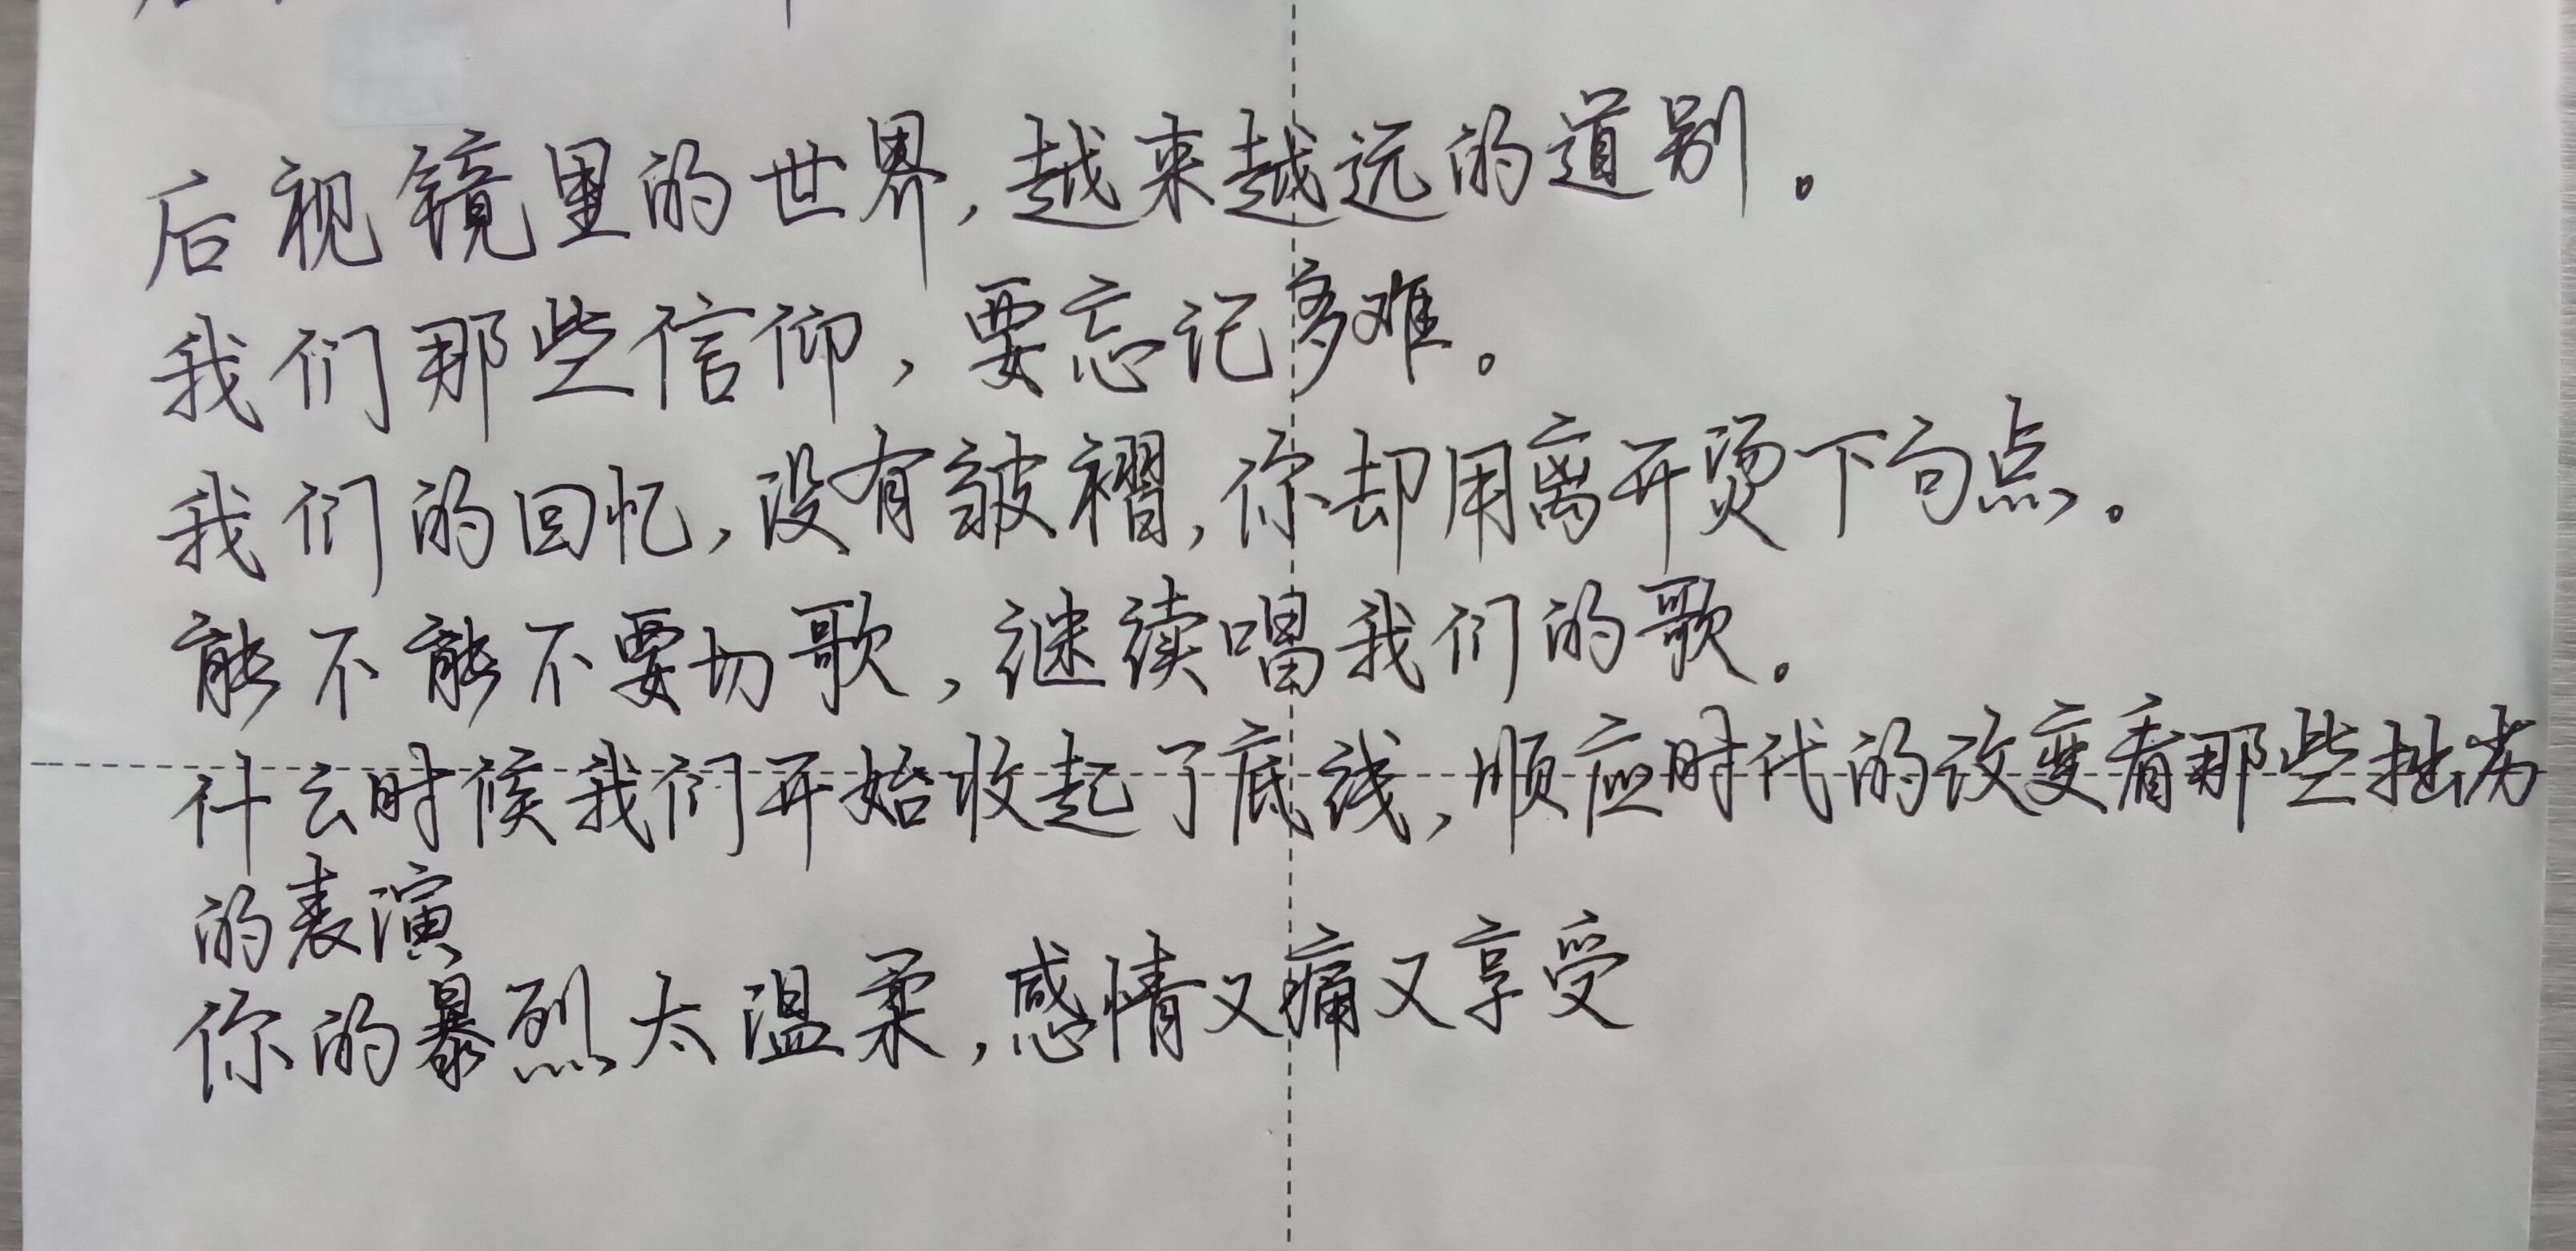 后视镜里的世界，越来越远的道别。
我们那些信仰，要忘记多难。
我们的回忆，没有皱褶，你却用离开烫下句点。
能不能不要切歌，继续唱我们的歌。
什么时候我们开始收起了底线，顺应时代的改变看那些拙劣
的表演
你的暴烈太温柔，感情又痛又享受